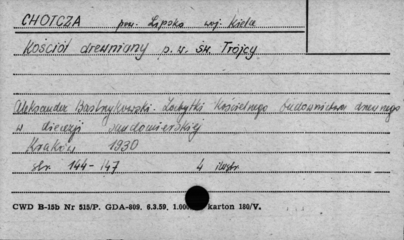 CHOTCZA pow. Lipsko woj. Kielce
Kościół drewniany p.w. św. Trójcy
Aleksander Bastrzykowski - Zabytki kościelnego budownictwa drewnianego
w diecezji sandomierskiej
Kraków 1930
str. 144-147 4 ilustr.
CWD B-15b Nr 515/P. GDA-809. 6.3.59. karton 180/V.